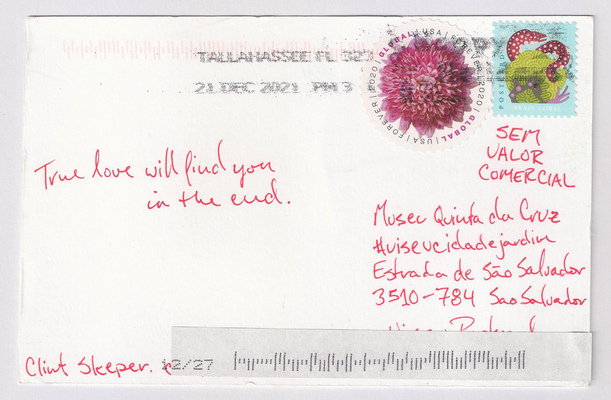 TALLAHASSEE FL 323
21 DEC 2021 PM 3
GLOBAL | USA | FOREVER | 2020 GLOBAL | USA | FOREVER | 2020
POSTCARD
SEM
VALOR
COMERCIAL
True love will find you
in the end.
Museu Quinta da Cruz
#viseucidadejardim
Estrada de São Salvador
3510-784 Sao Salvador
Clint Sleeper.
12/27